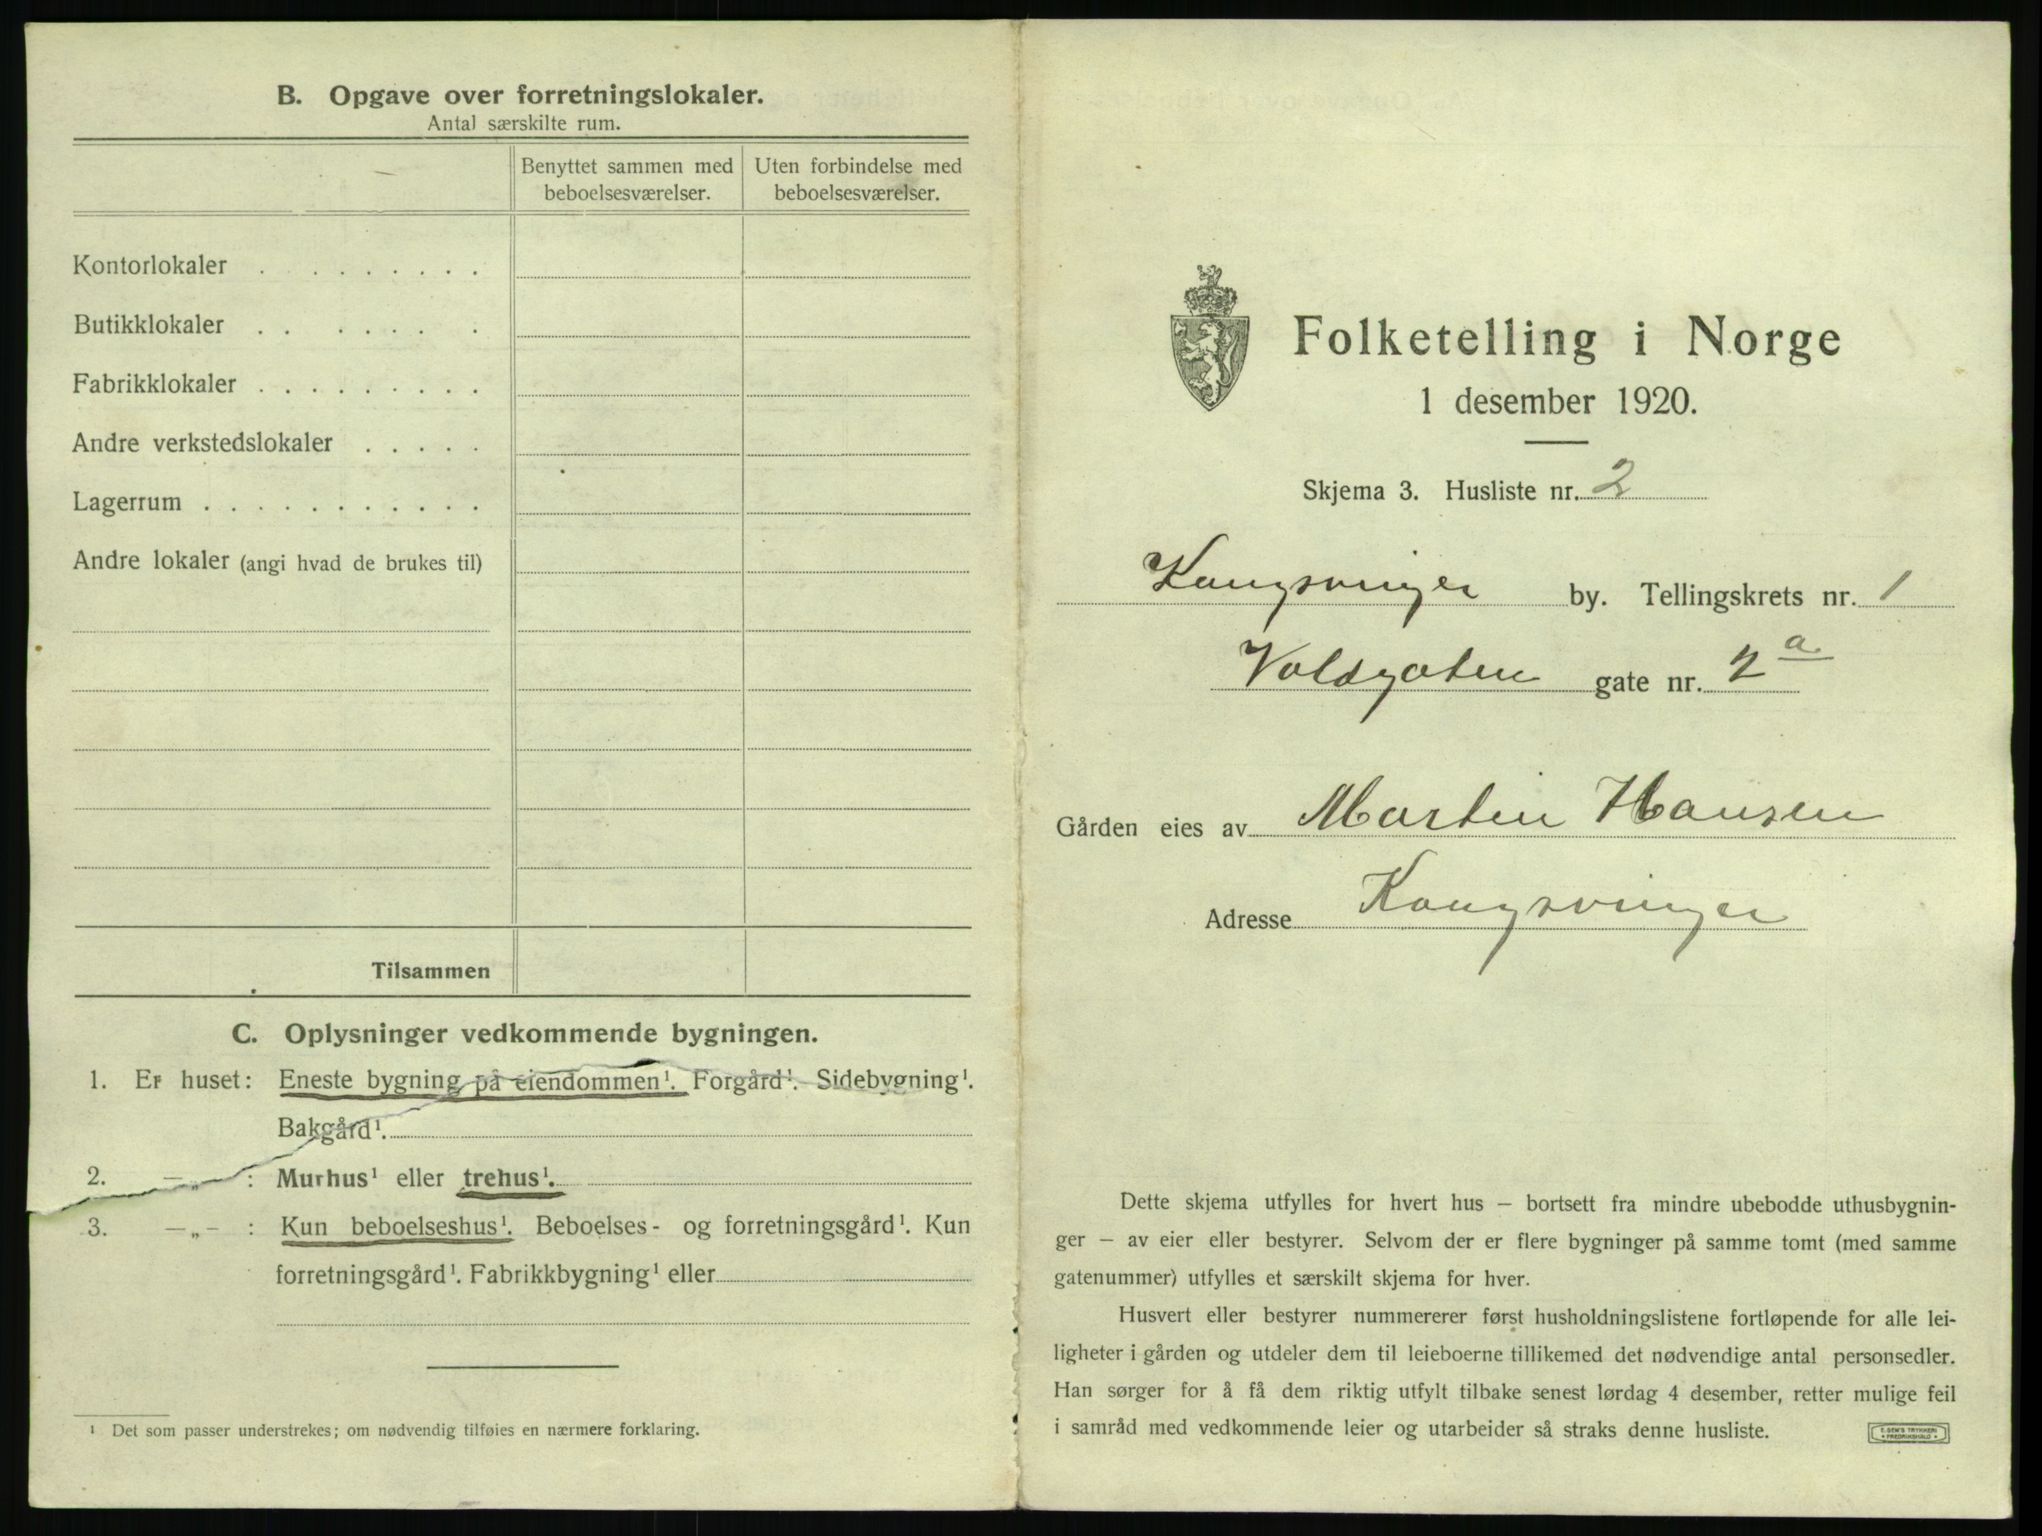 B. Opgave over forretningslokaler.
Antal særskilte rum.
Benyttet sammen med beboelsesværelser.
Uten forbindelse med beboelsesværelser.
Kontorlokaler . . . . . . . . .
Butikklokaler . . . . . . .
Fabrikklokaler . . . . . . . . .
Andre verkstedslokaler . . . . .
Lagerrum . . . . . . . . . . .
Andre lokaler (angi hvad de brukes til)
Tilsammen
C. Oplysninger vedkommende bygningen.
1. Er huset: Eneste bygning på eiendommen¹. Forgård¹. Sidebygning¹.
Bakgård¹.
2. —„— : Murhus¹ eller trehus¹.
3. —„— : Kun beboelseshus¹. Beboelses- og forretningsgård¹. Kun
forretningsgård¹. Fabrikkbygning¹ eller
¹ Det som passer understrekes; om nødvendig tilføies en nærmere forklaring.
Folketelling i Norge
1 desember 1920.
Skjema 3. Husliste nr. 2
Kongsvinger by. Tellingskrets nr. 1
Voldgaten gate nr. 2 a
Gården eies av Martin Hansen
Adresse Kongsvinger
Dette skjema utfylles for hvert hus — bortsett fra mindre ubebodde uthusbygnin-
ger — av eier eller bestyrer. Selvom der er flere bygninger på samme tomt (med samme
gatenummer) utfylles et særskilt skjema for hver.
Husvert eller bestyrer nummererer først husholdningslistene fortløpende for alle lei-
ligheter i gården og utdeler dem til leieboerne tillikemed det nødvendige antal personsedler.
Han sørger for å få dem riktig utfylt tilbake senest lørdag 4 desember, retter mulige feil
i samråd med vedkommende leier og utarbeider så straks denne husliste.
E. SEM'S TRYKKERI
FREDRIKSHALD